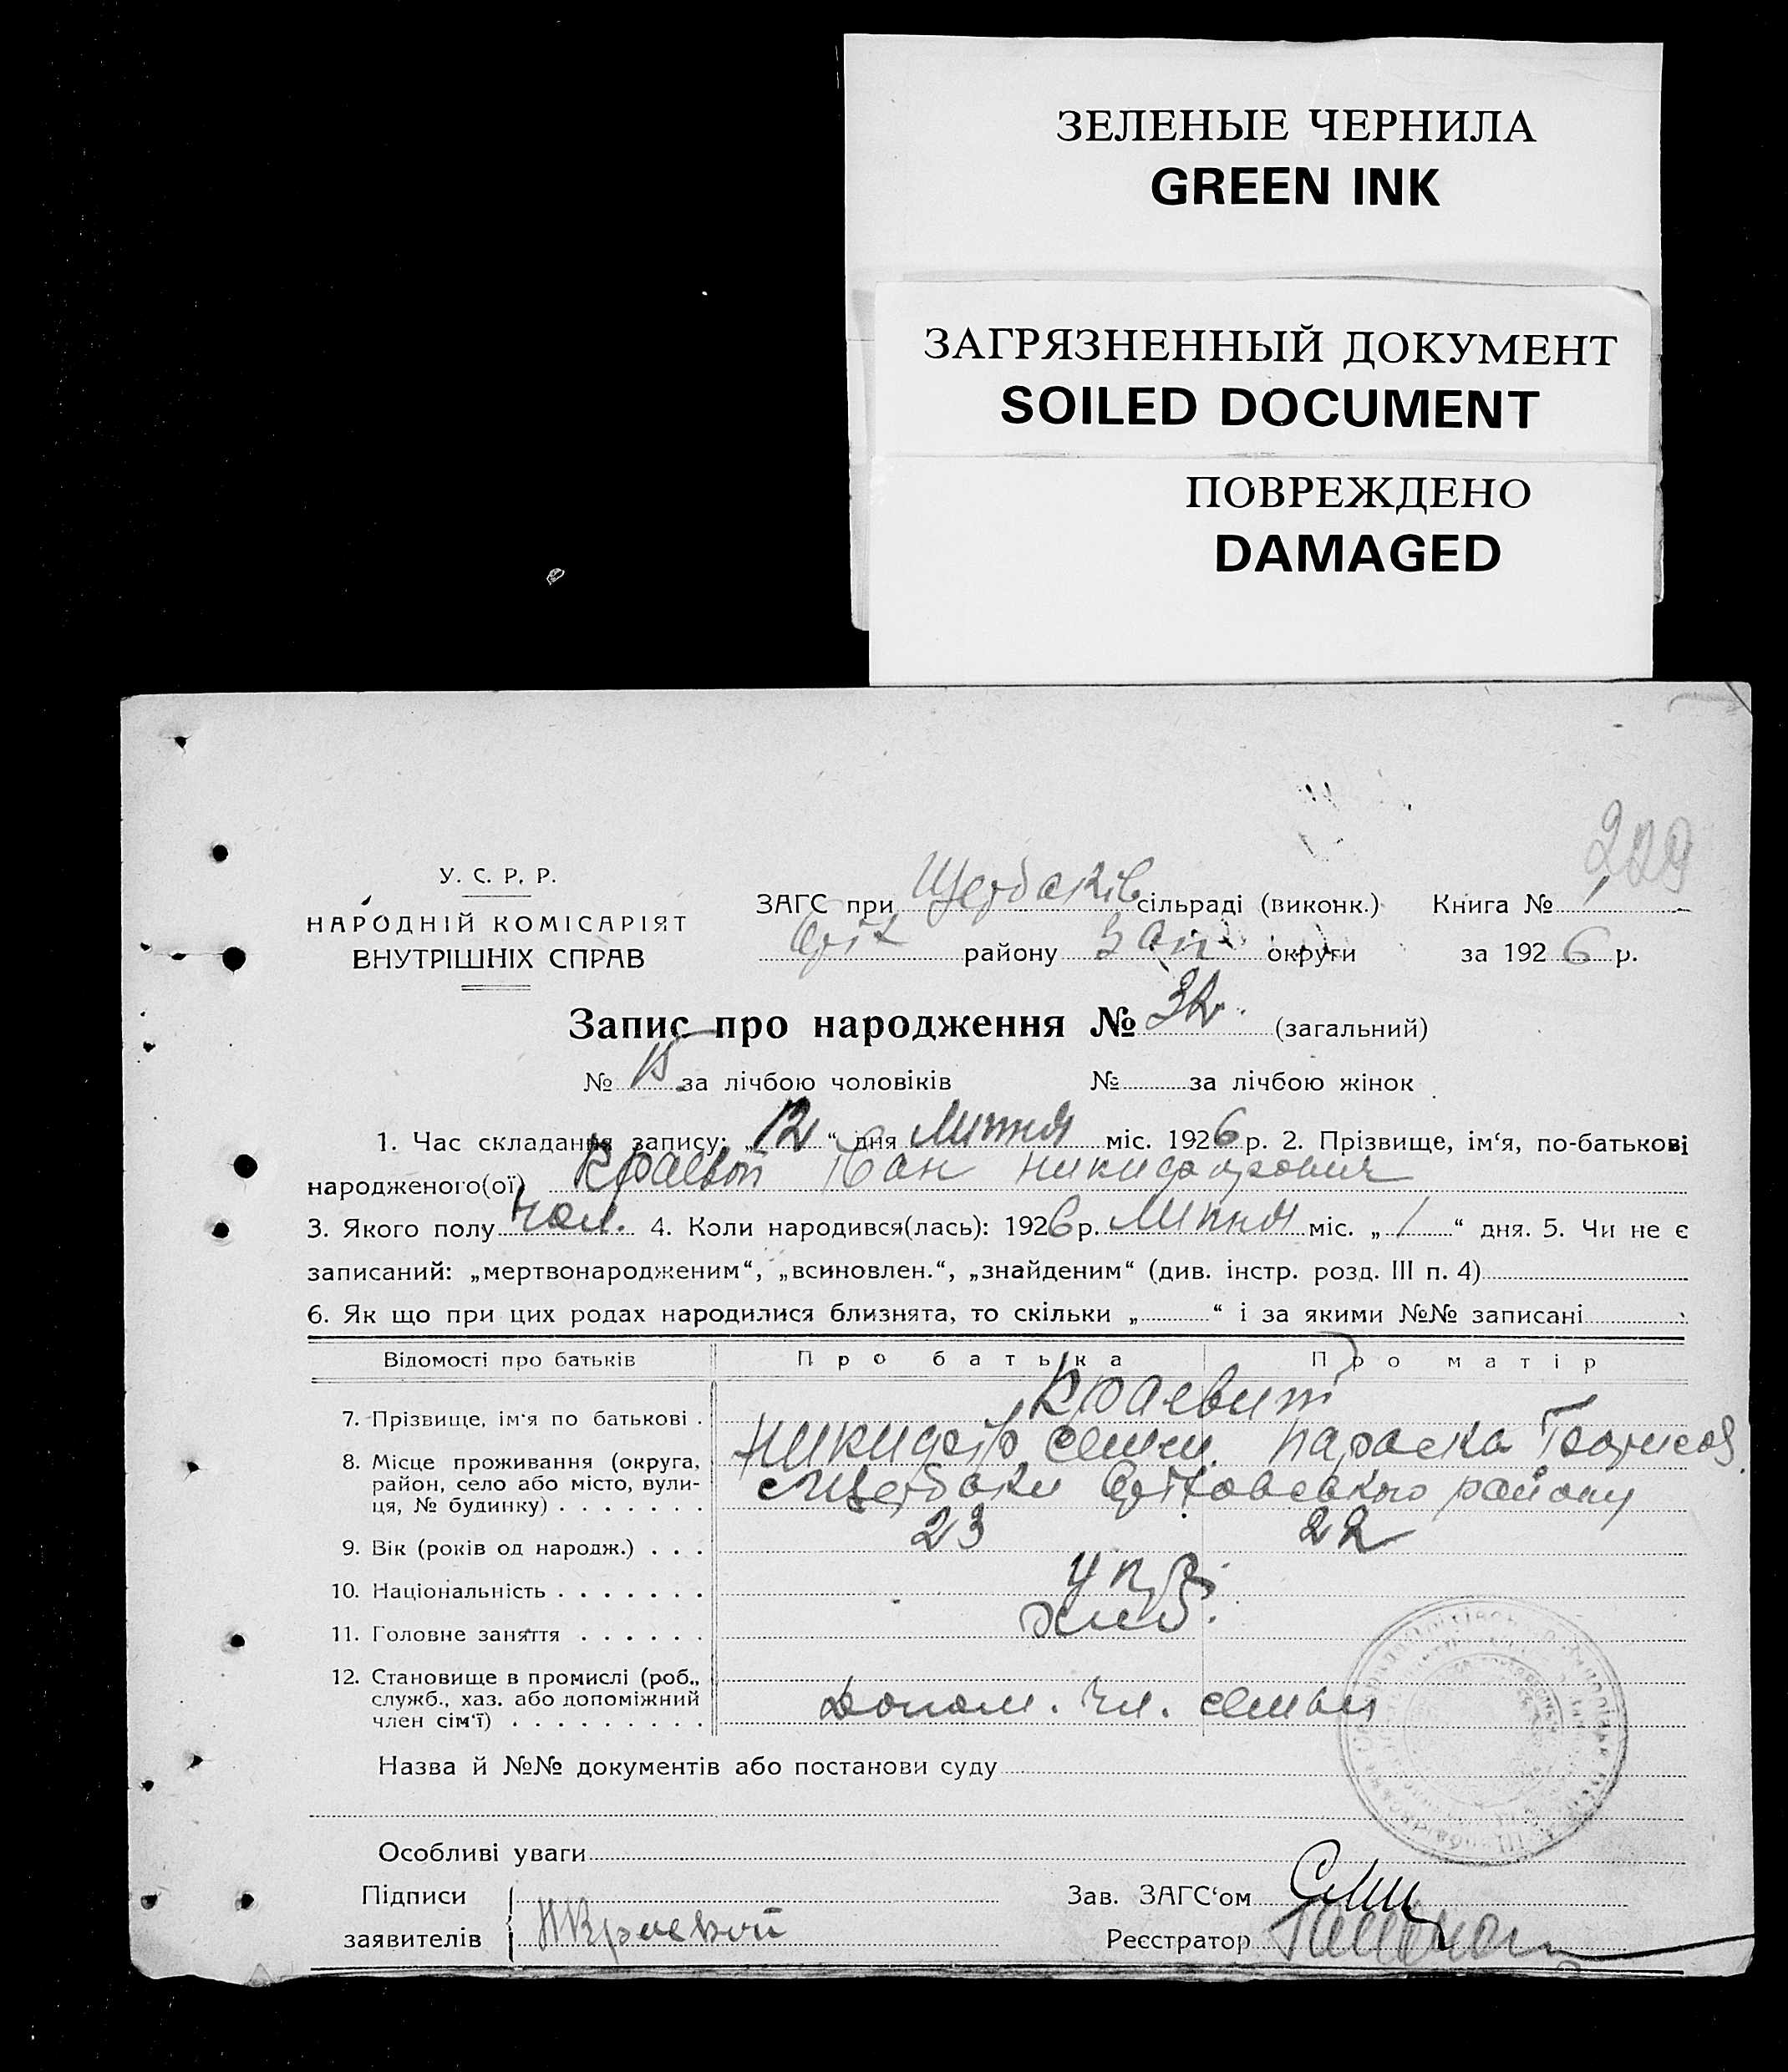 ЗЕЛЕНЫЕ ЧЕРНИЛА
GREEN INK
ЗАГРЯЗНЕННЫЙ ДОКУМЕНТ
SOILED DOCUMENT
ПОВРЕЖДЕНО
DAMAGED
229
У. С. Р. Р.
НАРОДНІЙ КОМІСАРІЯТ
ВНУТРІШНІХ СПРАВ
ЗАГС при Щербаків сільраді (виконк.) Книга №
Оріх району Зап округи за 1926 р.
Запис про народження № 32. (загальний)
№ 15 за лічбою чоловіків № за лічбою жінок
1. Час складання запису: „12“ дня Липня міс. 1926 р. 2. Прізвище, ім‘я, по-батькові
народженого(ої) Краевой Іван Никифорович
3. Якого полу чол. 4. Коли народився(лась): 1926 р. Липня міс. „1“ дня. 5. Чи не є
записаний: „мертвонародженим“, „всиновлен.“, „знайденим“ (див. інстр. розд. III п. 4)
6. Як що при цих родах народилися близнята, то скільки „ “ і за якими №№ записані
Відомості про батьків Про батька Про матір
Краевий
7. Прізвище, ім‘я по батькові . Никифор Семен. Параска
8. Місце проживання (округа,
район, село або місто, вули-
ця, № будинку) . . . . . . . с Щербаки Оріховського району
9. Вік (років од народж.) . . . 23 22
10. Національність . . . . . . . Укр.
11. Головне заняття . . . . . . хліб.
12. Становище в промислі (роб.,
служб., хаз. або допоміжний
член сім‘ї) . . . . . . . . . Допом. чл. семьи
Назва й №№ документів або постанови суду
Особливі уваги
Підписи Зав. ЗАГС‘ом
заявителів Н Краевой Реєстратор